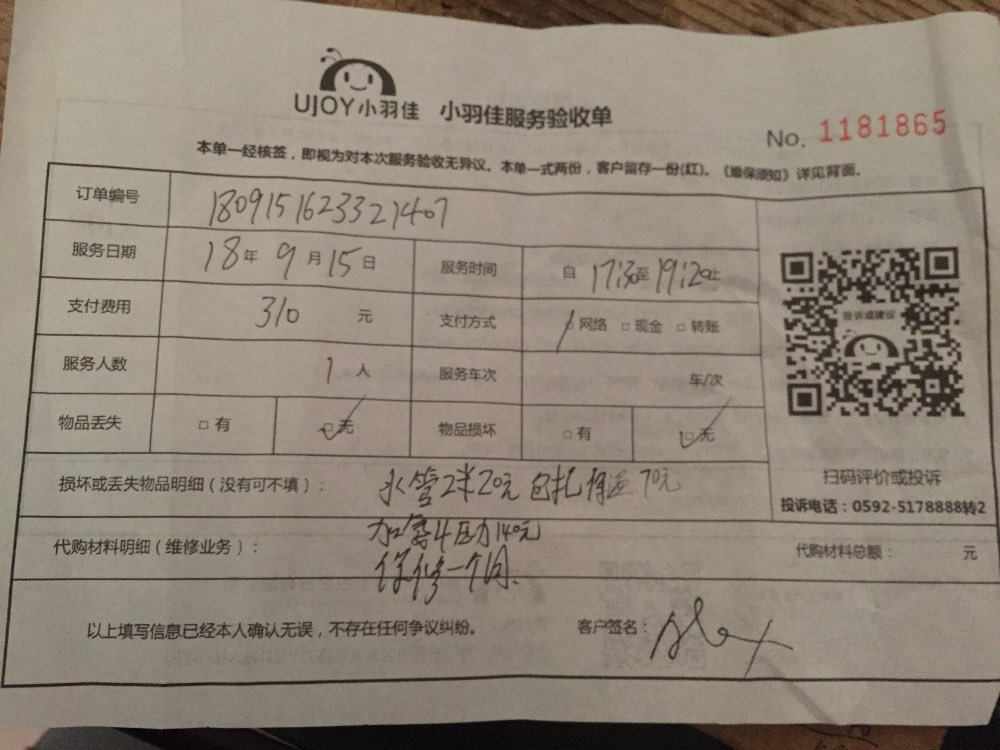 UJOY小羽佳 小羽佳服务验收单
No. 1181865
本单一经核签，即视为对本次服务验收无异议。本单一式两份，客户留存一份(红)。《维保须知》详见背面。
订单编号 1809151623321407
服务日期 18年9月15日 服务时间 自17:30至19:20止
支付费用 310 元 支付方式 □网络 □现金 □转账
服务人数 1人 服务车次 车/次
物品丢失 □有 □无 物品损坏 □有 □无
投诉或建议
扫码评价或投诉
投诉电话：0592-5178888转2
损坏或丢失物品明细（没有可不填）： 水管2米20元 包扎 70元
加 4压力140元
代购材料明细（维修业务）： 代购材料总额： 元
保修一个月.
以上填写信息已经本人确认无误，不存在任何争议纠纷。 客户签名： Alex